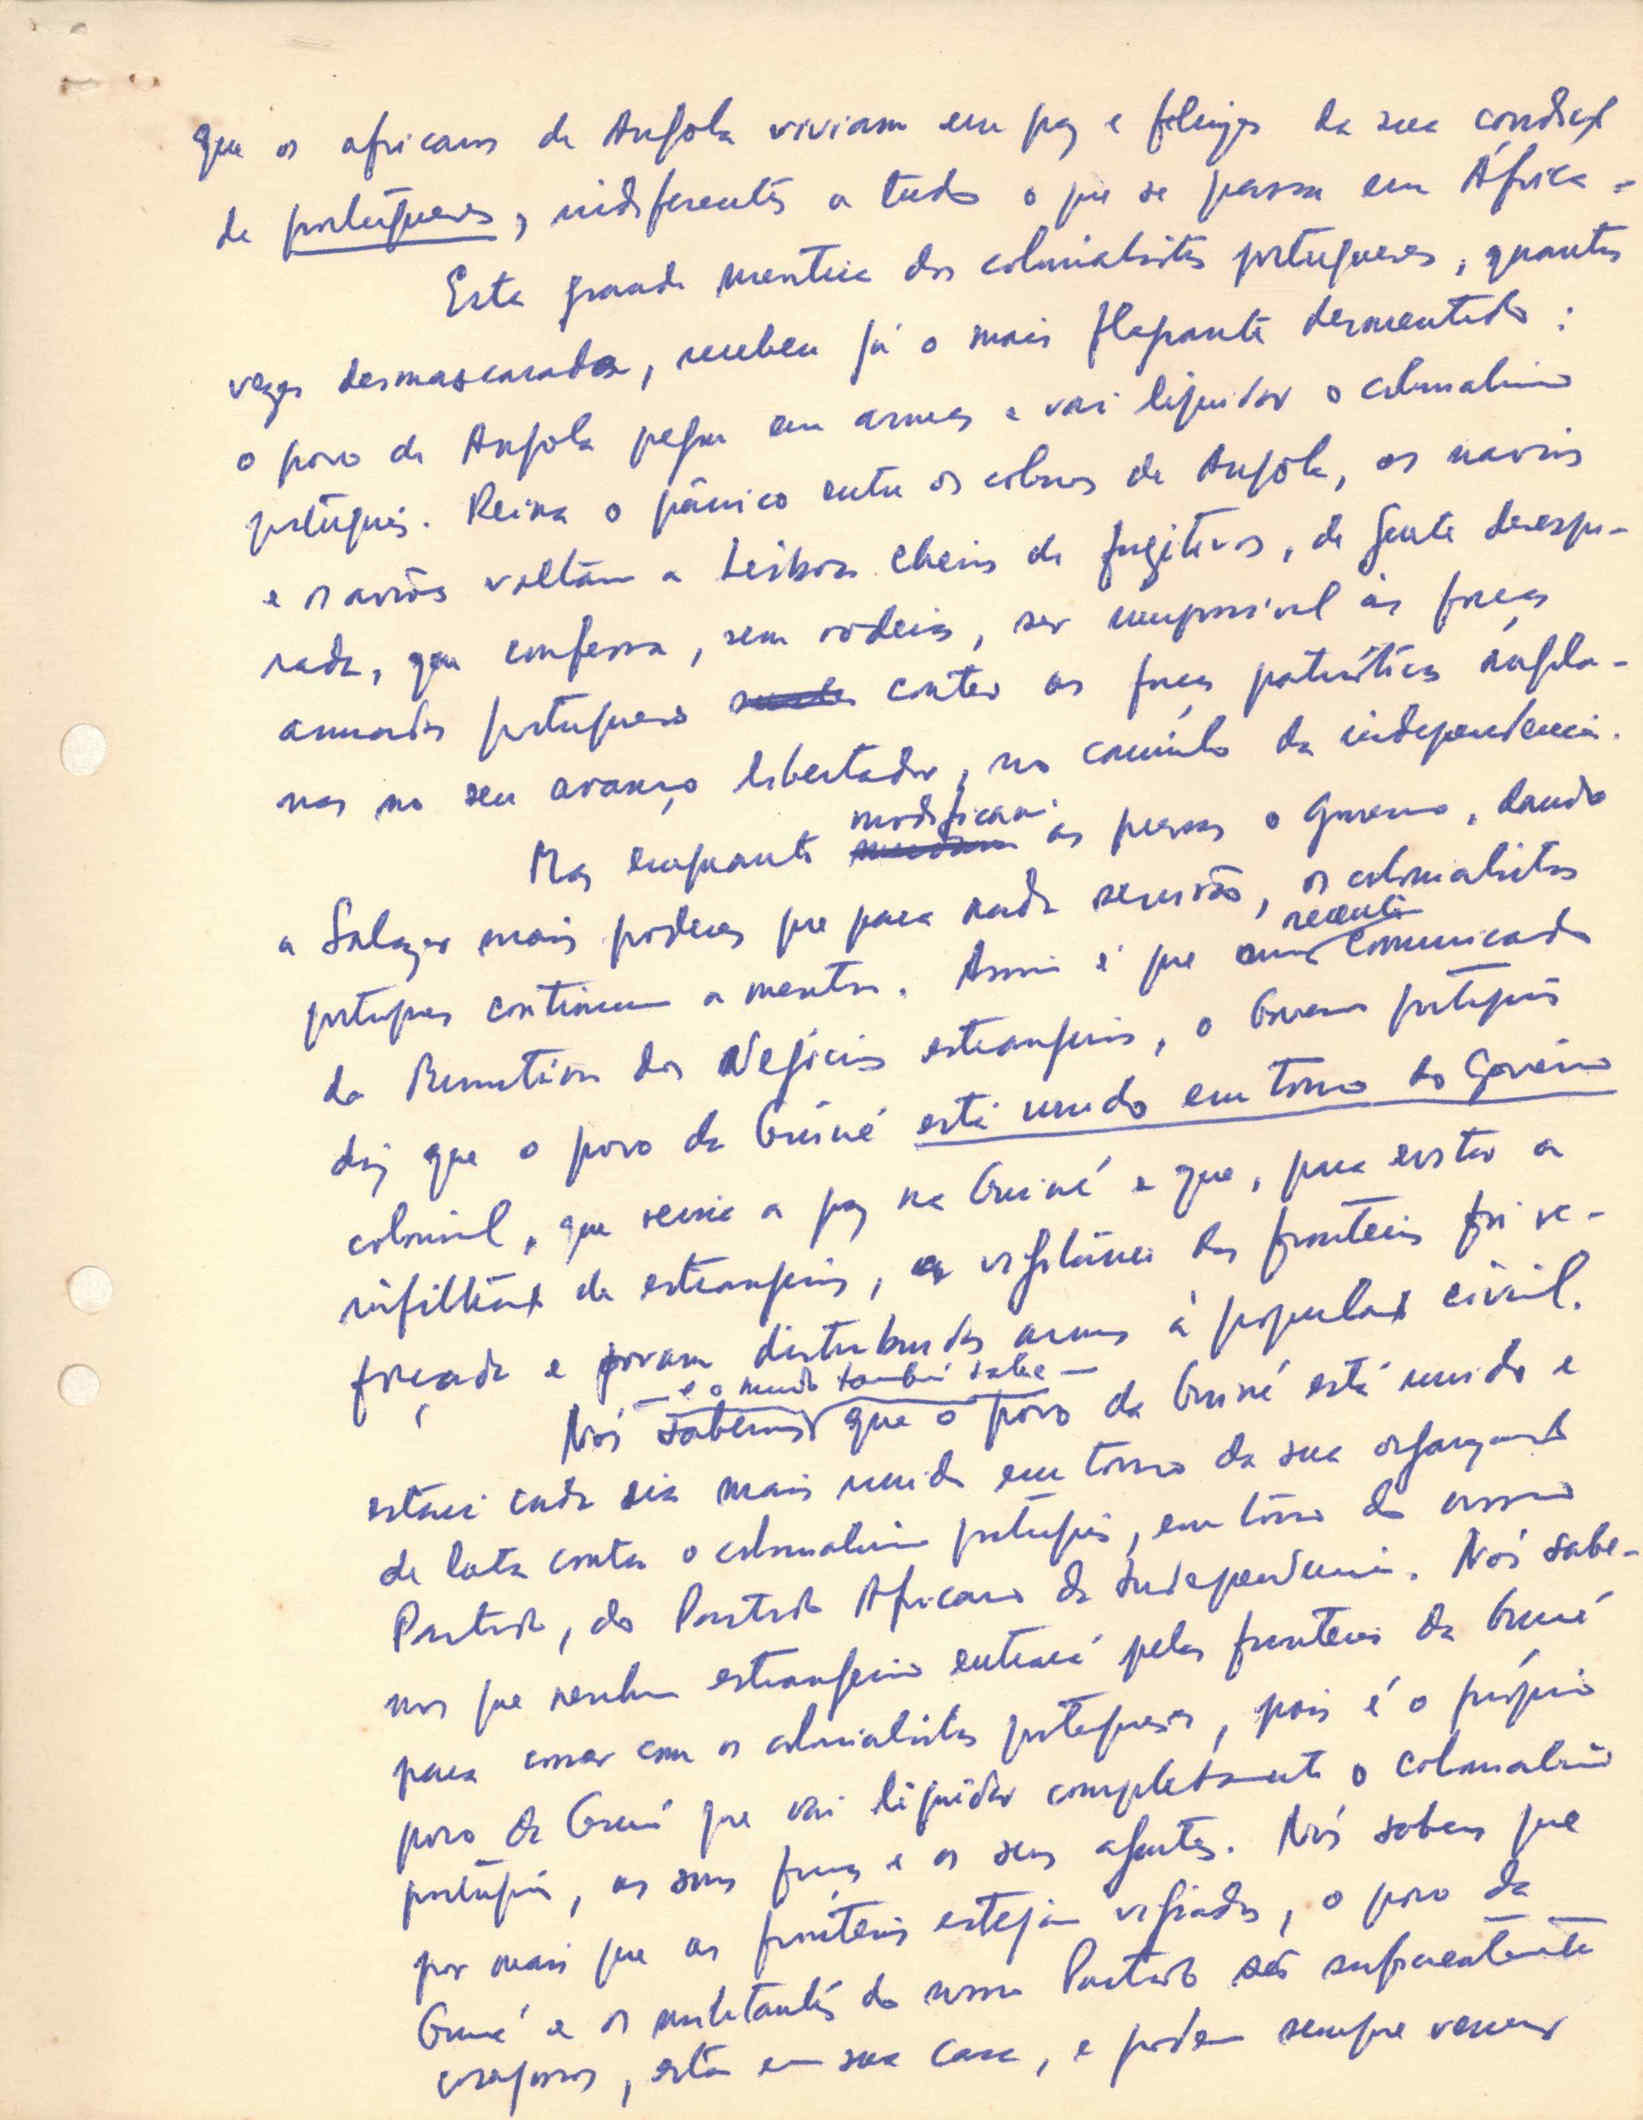 que os africanos de Angola viviam em paz e felizes da sua condição
de portugueses, indiferentes a tudo o que se passa em África.
Esta grande mentira dos colonialistas portugueses, quantas
vezes desmascarada, recebeu já o mais flagrante desmentido:
o povo de Angola pegou em armas e vai liquidar o colonialismo
português. Reina o pânico entre os colonos de Angola, os navios
e os aviões voltam a Lisboa cheios de fugitivos, de gente desespe-
rada, que confessa, sem rodeios, ser impossível às forças
armadas portuguesas conter as forças patrióticas angola-
nas no seu avanço libertador, no caminho da independência.
Mas enquanto modificam as pessoas o Governo, dando
a Salazar mais poderes que para nada servirão, os colonialistas
portugueses continuam a mentir. Assim é que num recente comunicado
do Ministério dos Negócios estrangeiros, o Governo português
diz que o povo da Guiné está unido em torno do Govêrno
colonial, que reina a paz na Guiné e que, para evitar a
infiltração de estrangeiros, a vigilância das fronteiras foi re-
forçada e foram distribuidas armas à população civil.
Nós sabemos — e o mundo também sabe — que o povo da Guiné está unido e
estará cada dia mais unido em torno da sua organização
de luta contra o colonialismo português, em tôrno do nosso
Partido, do Partido Africano da Independência. Nós sabe-
mos que nenhum estrangeiro entrará pelas fronteiras da Guiné
para correr com os colonialistas portugueses, pois é o próprio
povo da Guiné que vai liquidar completamente o colonialismo
português, as suas forças e os seus agentes. Nós sabemos que
por mais que as fronteiras estejam vigiadas, o povo da
Guiné e os militantes do nosso Partido são suficientemente
corajosos, estão em sua casa, e podem sempre vencer